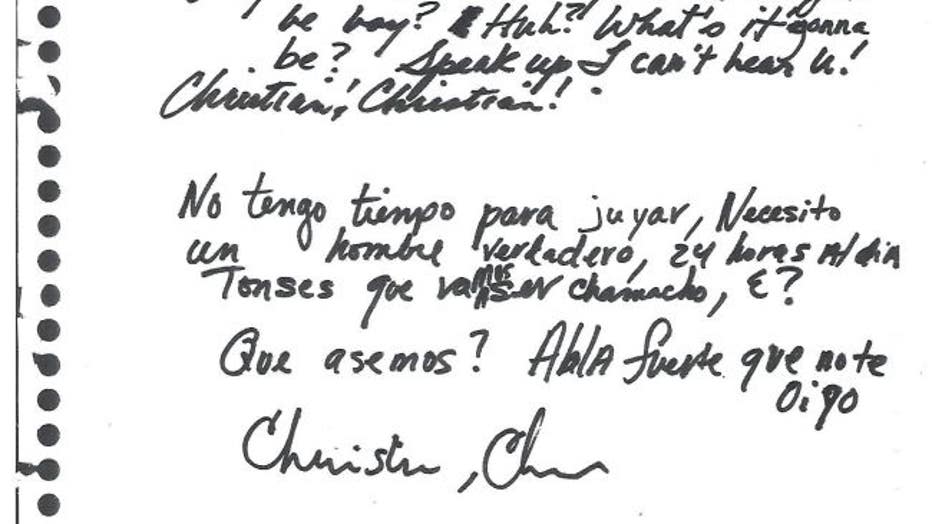 be boy? Huh? What's it gonna
be? Speak up I can't hear u!
Christian, Christian!
No tengo tiempo para juyar, Necesito
un hombre vertadero, 24 horas Al dia
Tonses que vamos Ser chamacho, E?
Que asemos? AblA fuerte que no te
Oigo